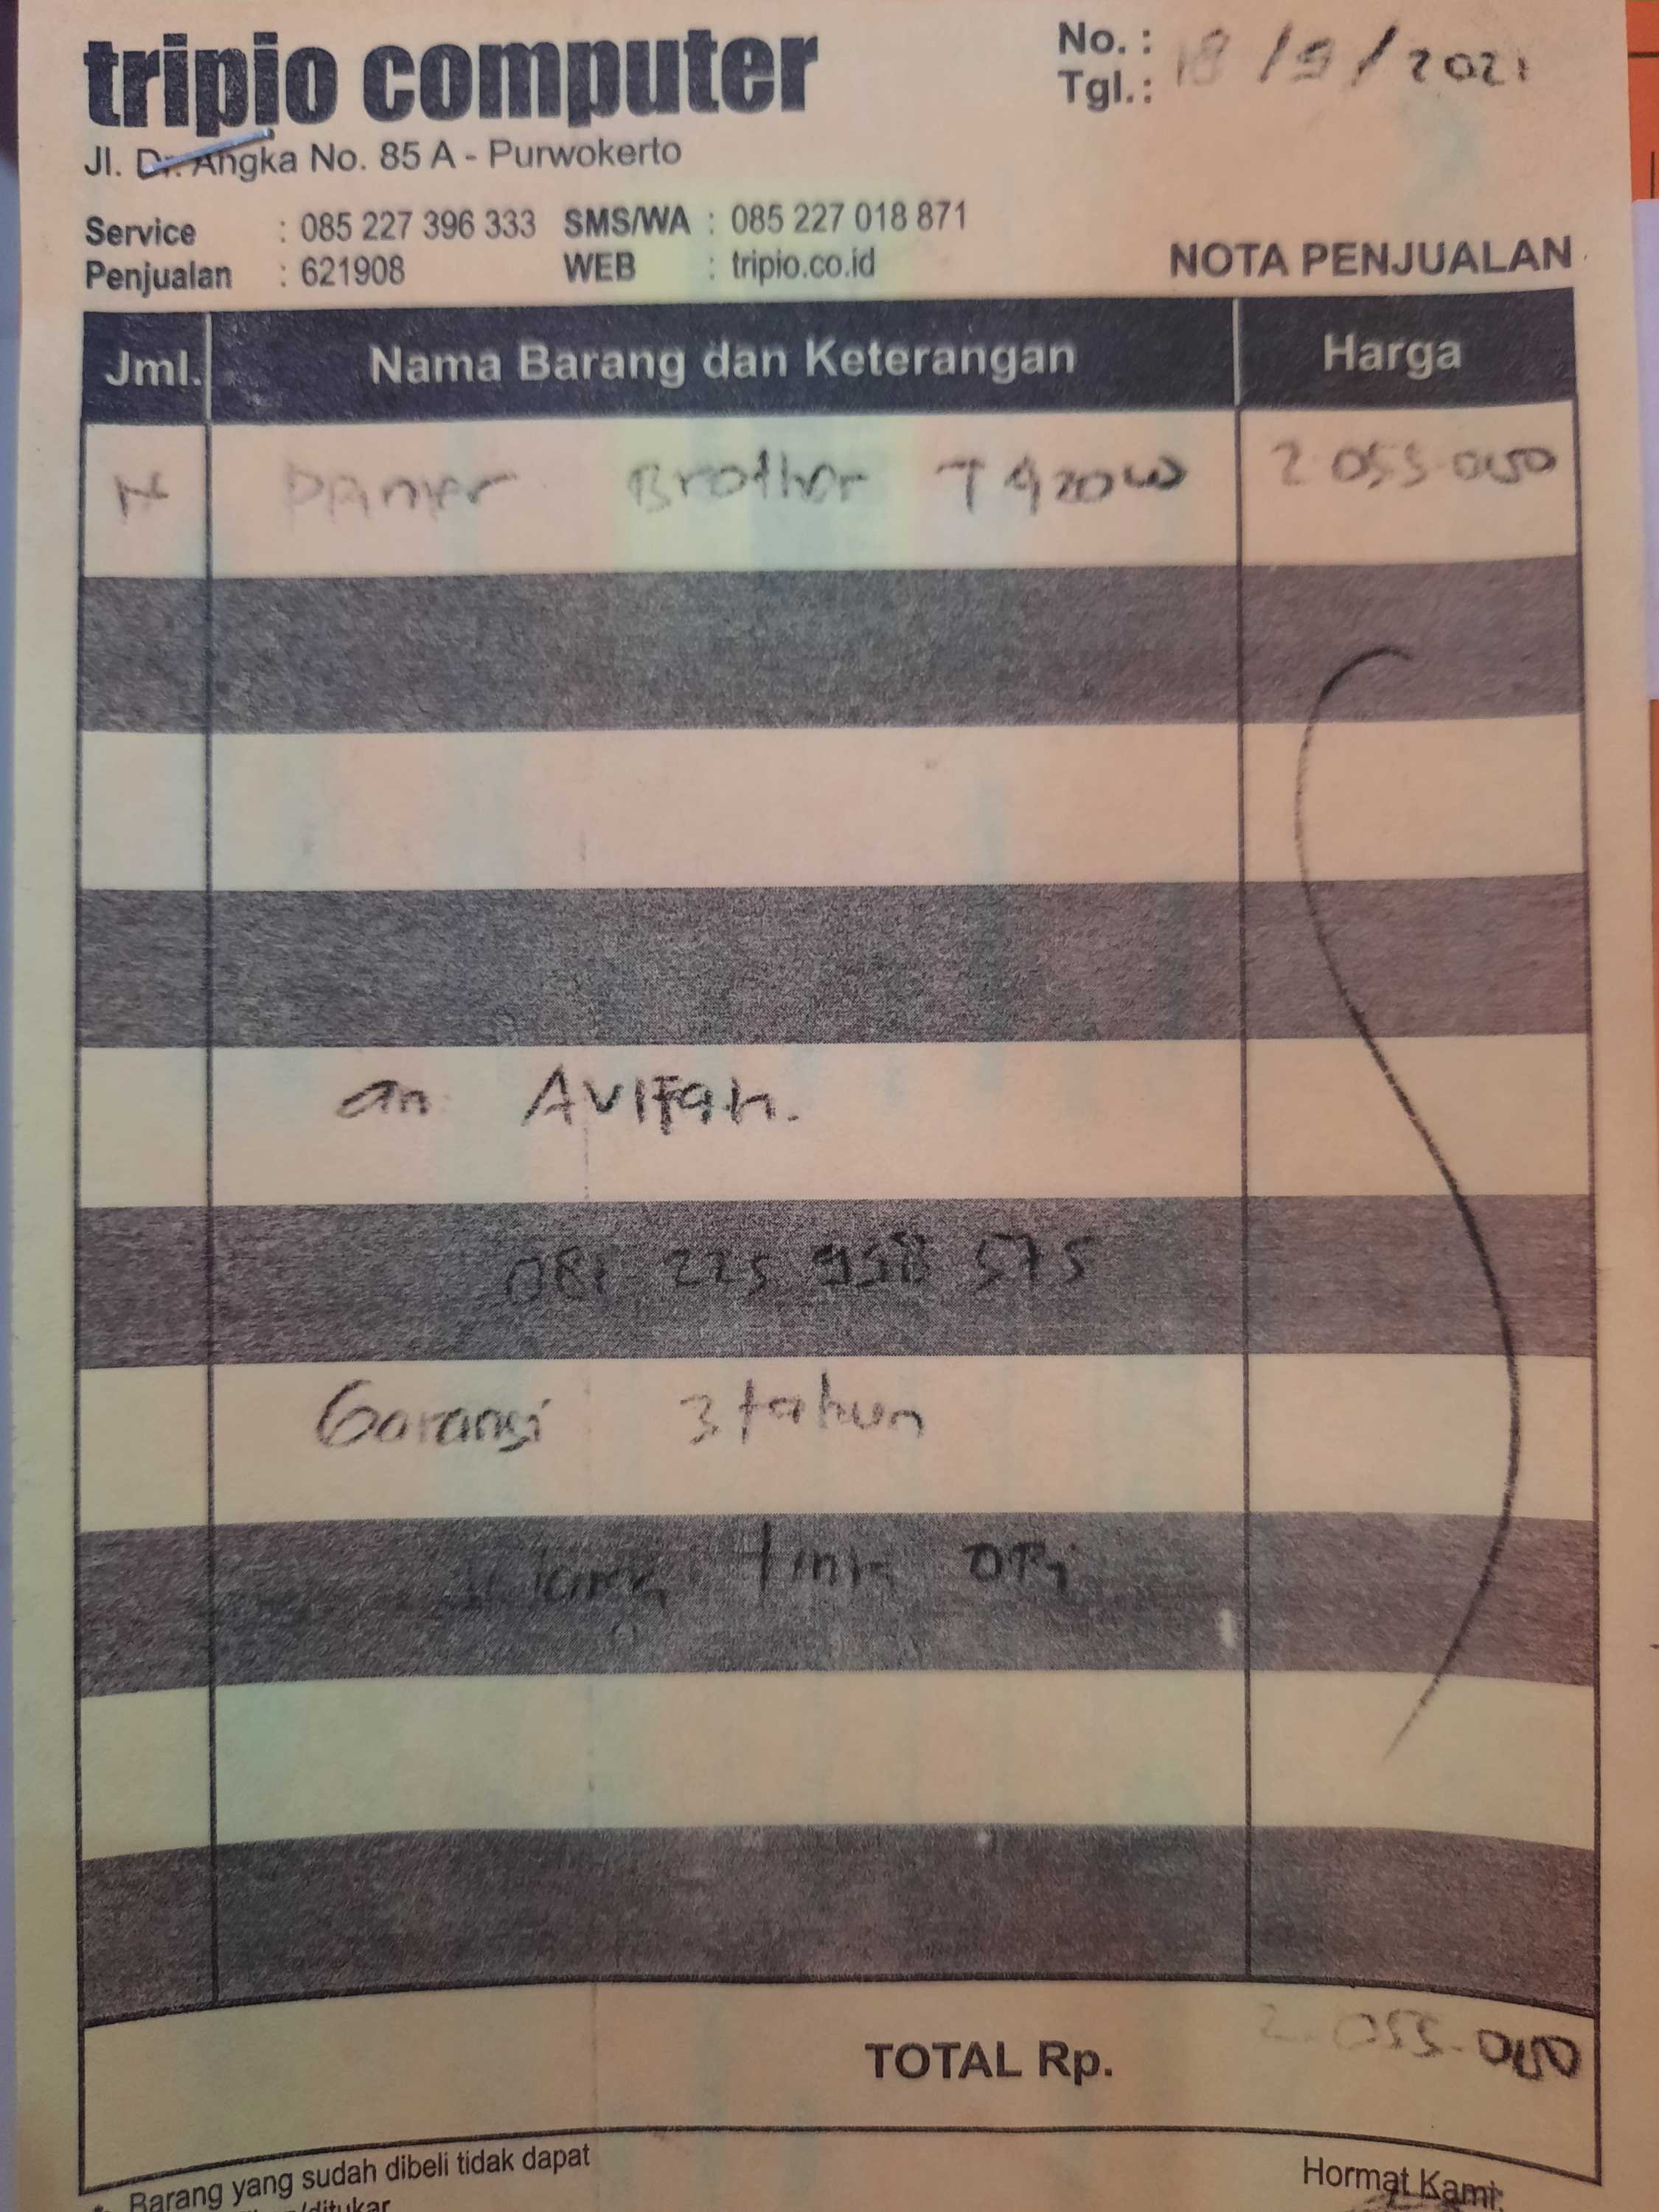 tripio computer
No. :
Tgl. : 18 / 9 / 2021
Jl. Dr. Angka No. 85 A - Purwokerto
Service : 085 227 396 333 SMS/WA : 085 227 018 871
Penjualan : 621908 WEB : tripio.co.id
NOTA PENJUALAN
Jml. Nama Barang dan Keterangan Harga
Brother T920W 2.055.000
an Avifah.
081 225 998 575
Garansi 3 tahun
tinta ori
TOTAL Rp. 2.055.000
* Barang yang sudah dibeli tidak dapat
/ditukar
Hormat Kami,